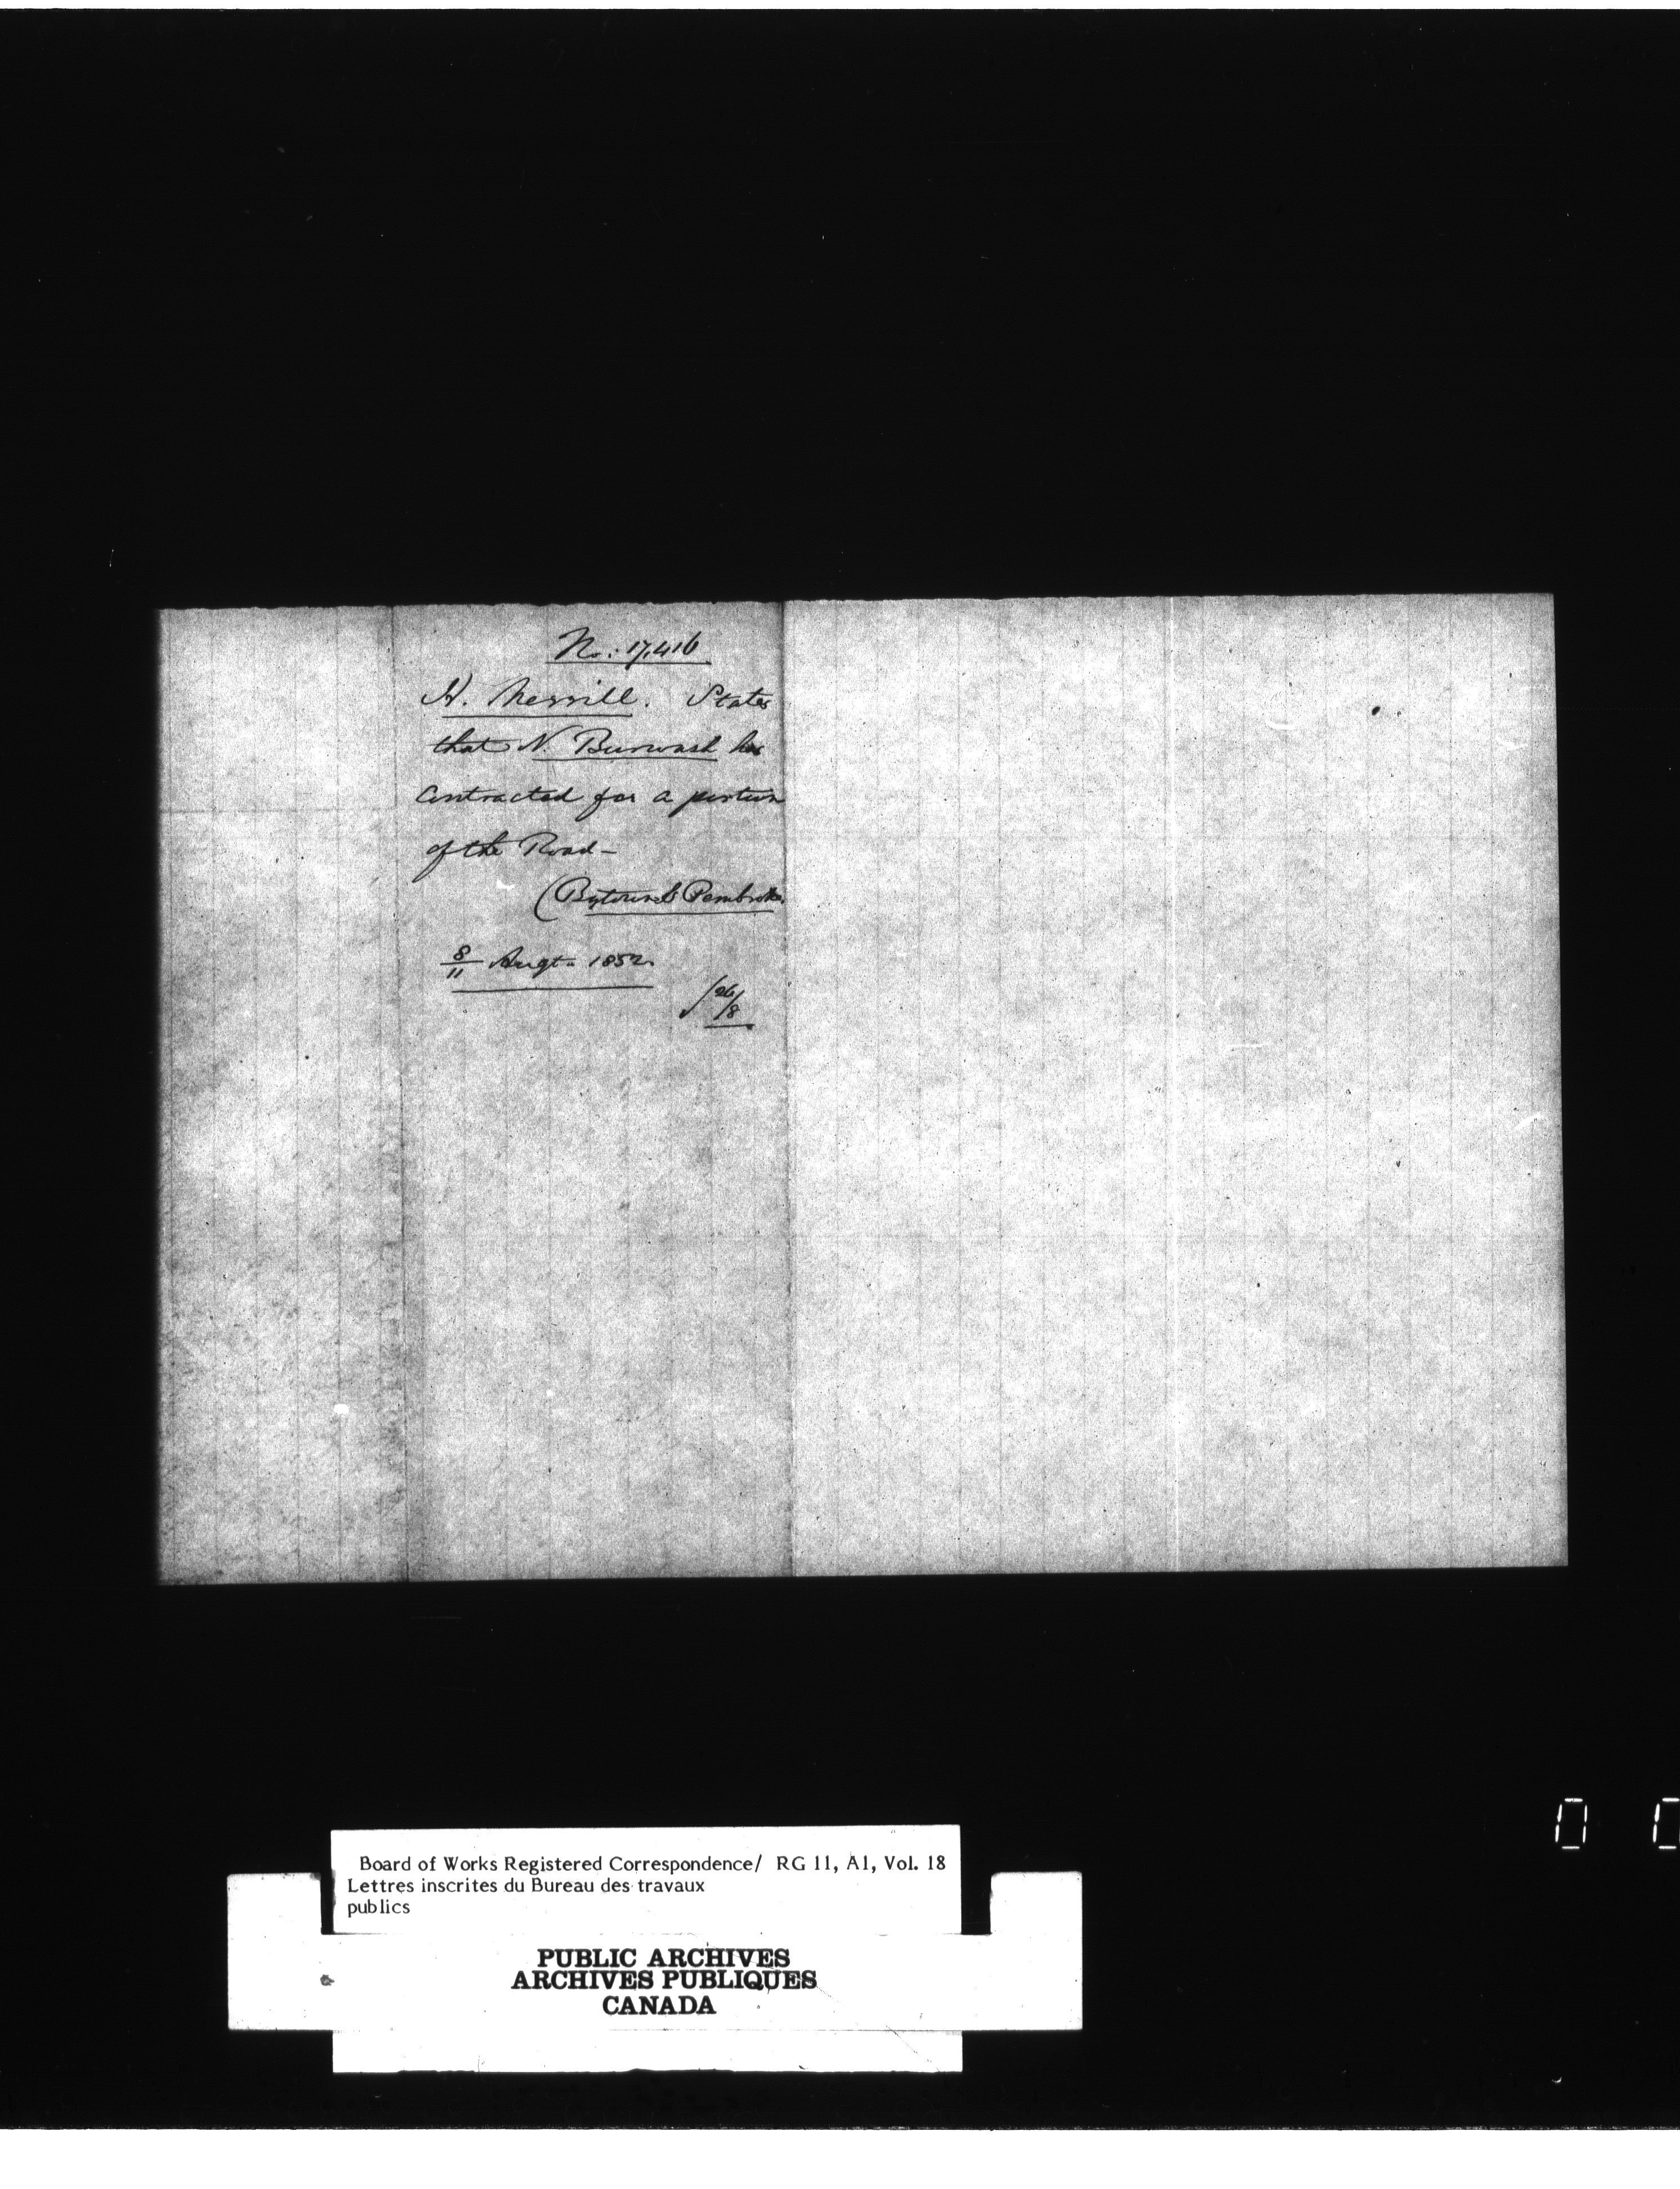 No: 17,416
H. Merrill. States
that N. Burwash has
contracted for a portion
of the Road -
(Bytown & Pembroke.
8/11 Augt. 1852.
26/8
Board of Works Registered Correspondence/ RG 11, A1, Vol. 18
Lettres inscrites du Bureau des travaux
publics
PUBLIC ARCHIVES
ARCHIVES PUBLIQUES
CANADA
0